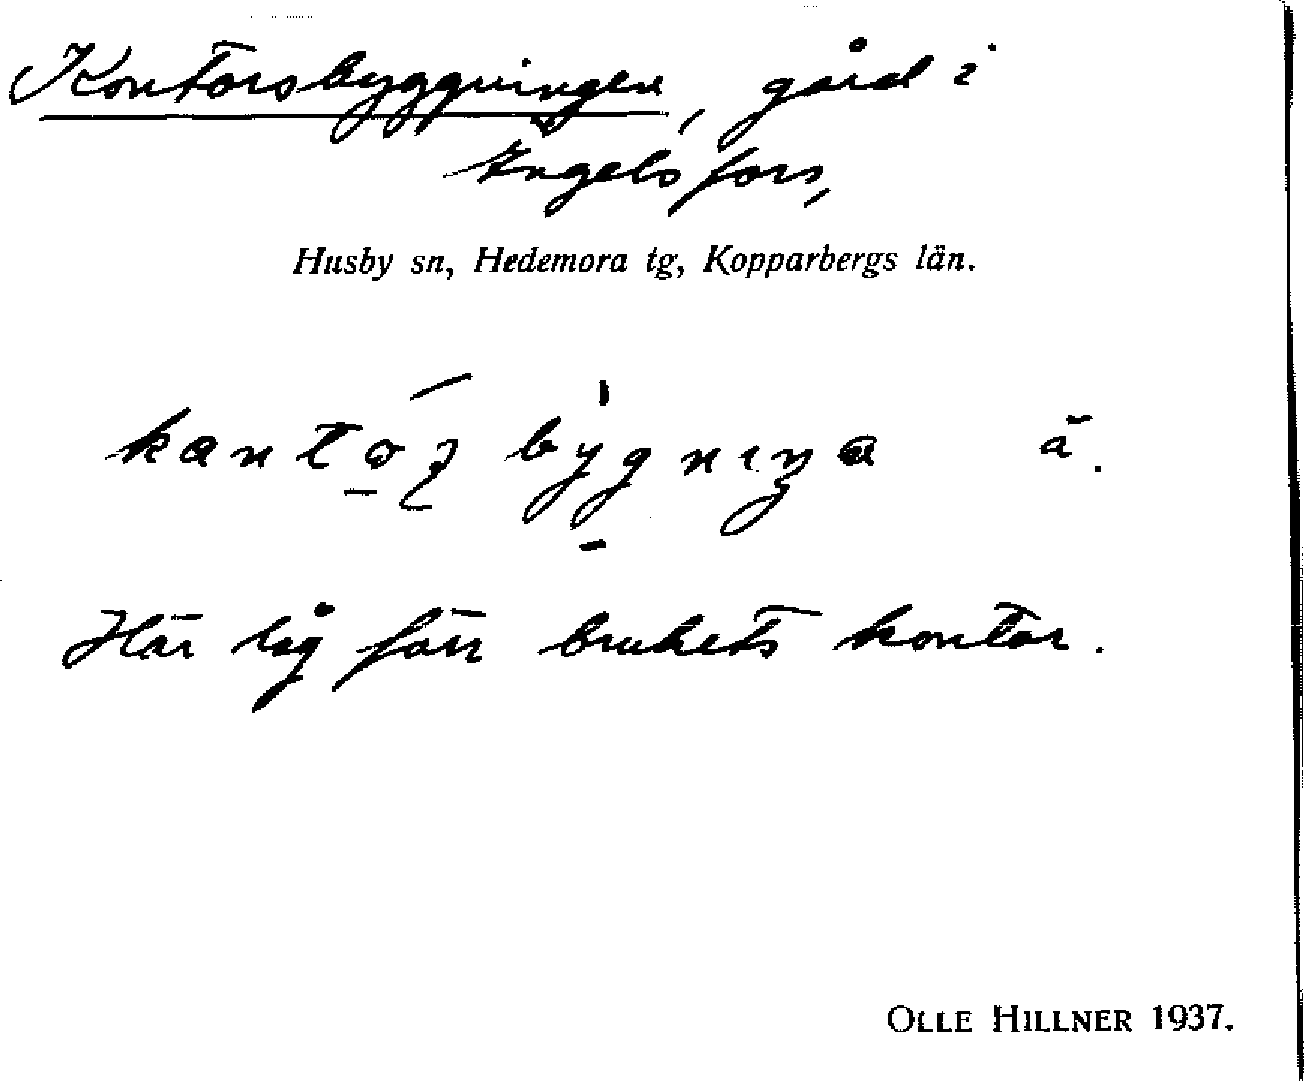 Kontorsbyggningen, gård i
Ingelsfors,
Husby sn, Hedemora tg, Kopparbergs län.
kantoʂ bygnıŋa ä.
Här låg förr brukets kontor.
OLLE HILLNER 1937.